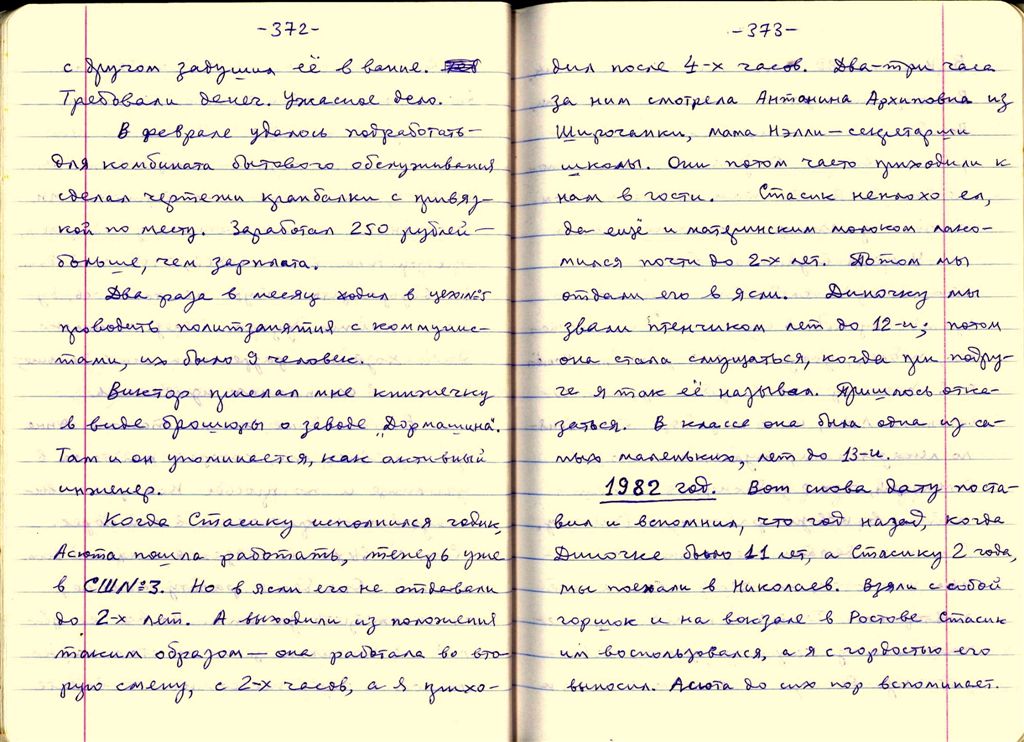 -372-
с другом задушил её в ванне.
Требовали денег. Ужасное дело.
В феврале удалось подработать—
для комбината бытового обслуживания
сделал чертежи кранбалки с привяз-
кой по месту. Заработал 250 рублей—
больше, чем зарплата.
Два раза в месяц ходил в цех №5
проводить политзанятия с коммунис-
тами, их было 9 человек.
Виктор прислал мне книжечку
в виде брошюры о заводе „Дормашина".
Там и он упоминается, как активный
инженер.
Когда Стасику исполнился годик,
Асюта пошла работать, теперь уже
в СШ №3. Но в ясли его не отдавали
до 2-х лет. А выходили из положения
таким образом — она работала во вто-
рую смену, с 2-х часов, а я прихо-
-373-
дил после 4-х часов. Два-три часа
за ним смотрела Антонина Архиповна из
Широчанки, мама Нэлли — секретарши
школы. Они потом часто приходили к
нам в гости. Стасик неплохо ел,
да ещё и материнским молоком лако-
мился почти до 2-х лет. Потом мы
отдали его в ясли. Диночку мы
звали птенчиком лет до 12-и; потом
она стала смущаться, когда при подру-
ге я так её называл. Пришлось отка-
заться. В классе она была одна из са-
мых маленьких, лет до 13-и.
1982 год. Вот снова дату поста-
вил и вспомнил, что год назад, когда
Диночке было 11 лет, а Стасику 2 года,
мы поехали в Николаев. Взяли с собой
горшок и на вокзале в Ростове Стасик
им воспользовался, а я с гордостью его
выносил. Асюта до сих пор вспоминает.